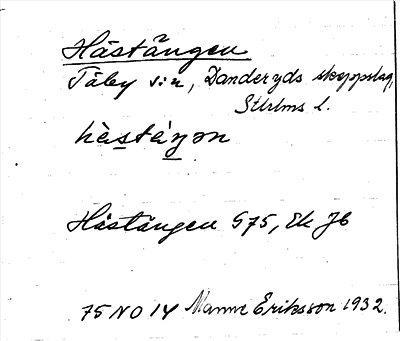 Hästängen
Täby s:n, Danderyds skeppslag,
Sthlms l.
hèstáŋən
Hästängen 975, Ek Jb
75 NO 14 Manne Eriksson 1932.